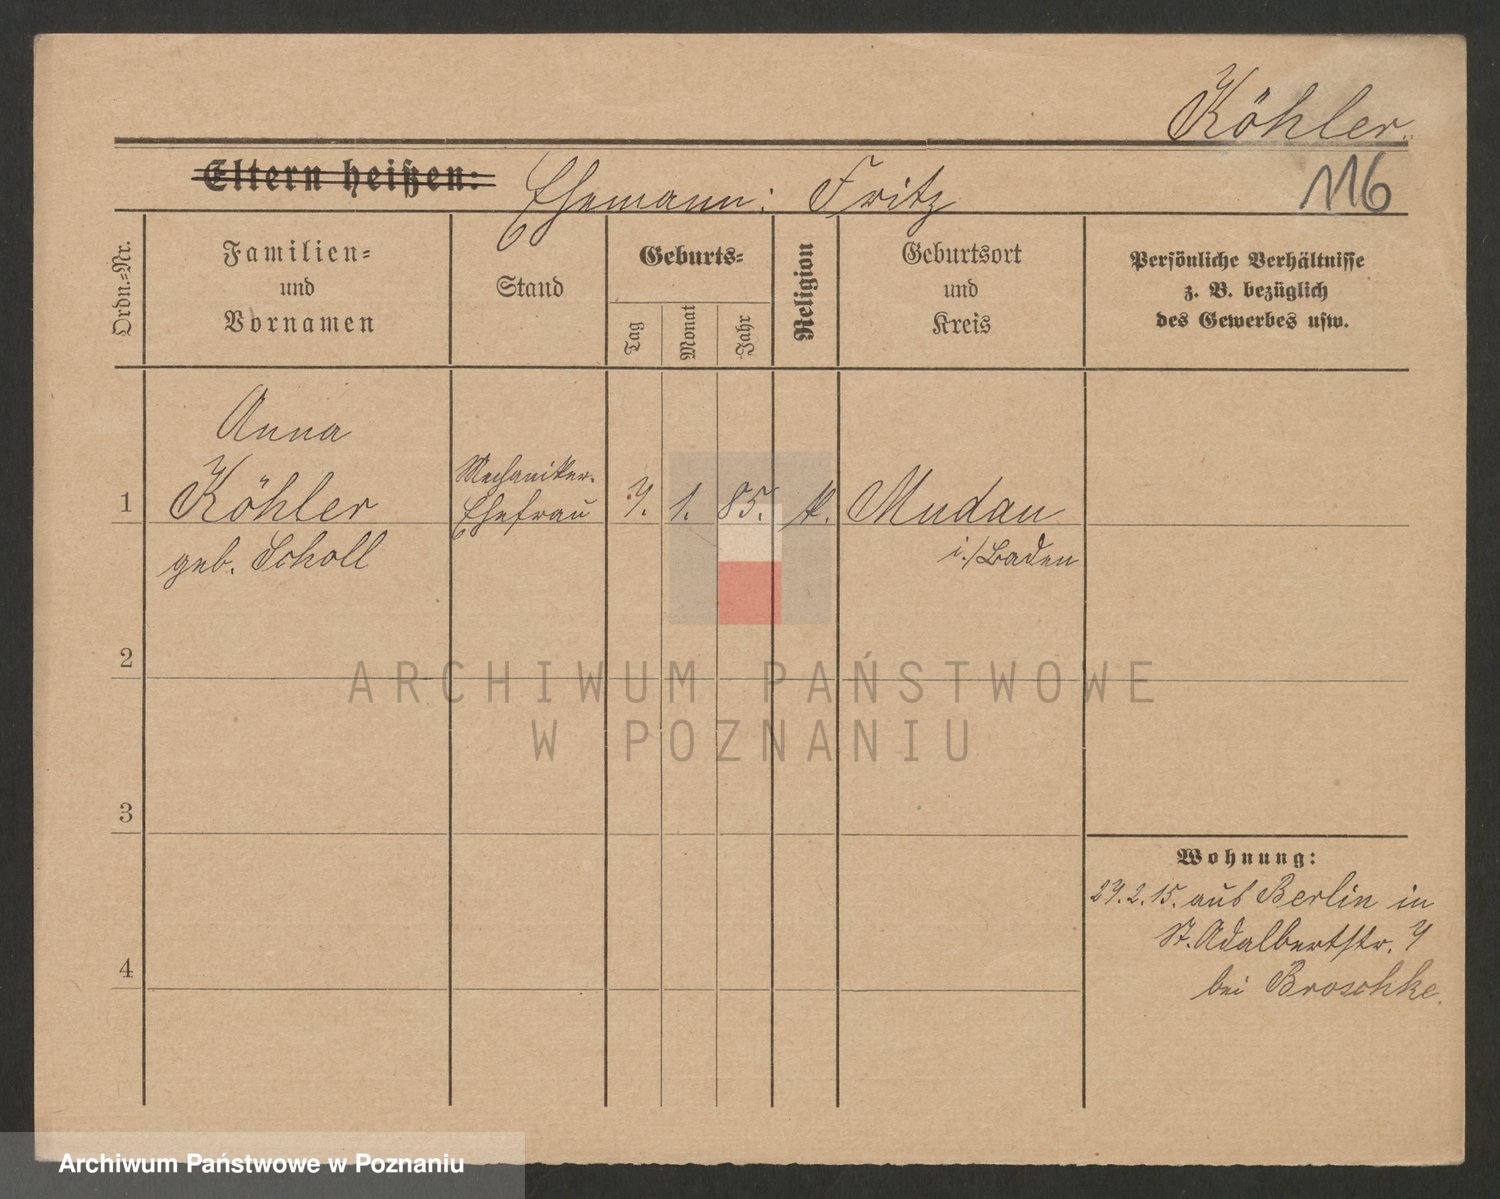 Köhler.
116
Eltern heißen: Ehemann: Fritz
Ordn.-Nr.
Familien-
und
Vornamen
Stand
Geburts-
Tag
Monat
Jahr
Religion
Geburtsort
und
Kreis
Persönliche Verhältnisse
z. B. bezüglich
des Gewerbes usw.
Anna
1 Köhler Mechaniker- 7. 1. 85. k. Mudau
Ehefrau
geb. Scholl i./Baden
2
3
4
Wohnung:
27. 2. 15. aus Berlin in
St. Adalbertstr. 7
bei Broschke.
ARCHIWUM PAŃSTWOWE
W POZNANIU
Archiwum Państwowe w Poznaniu